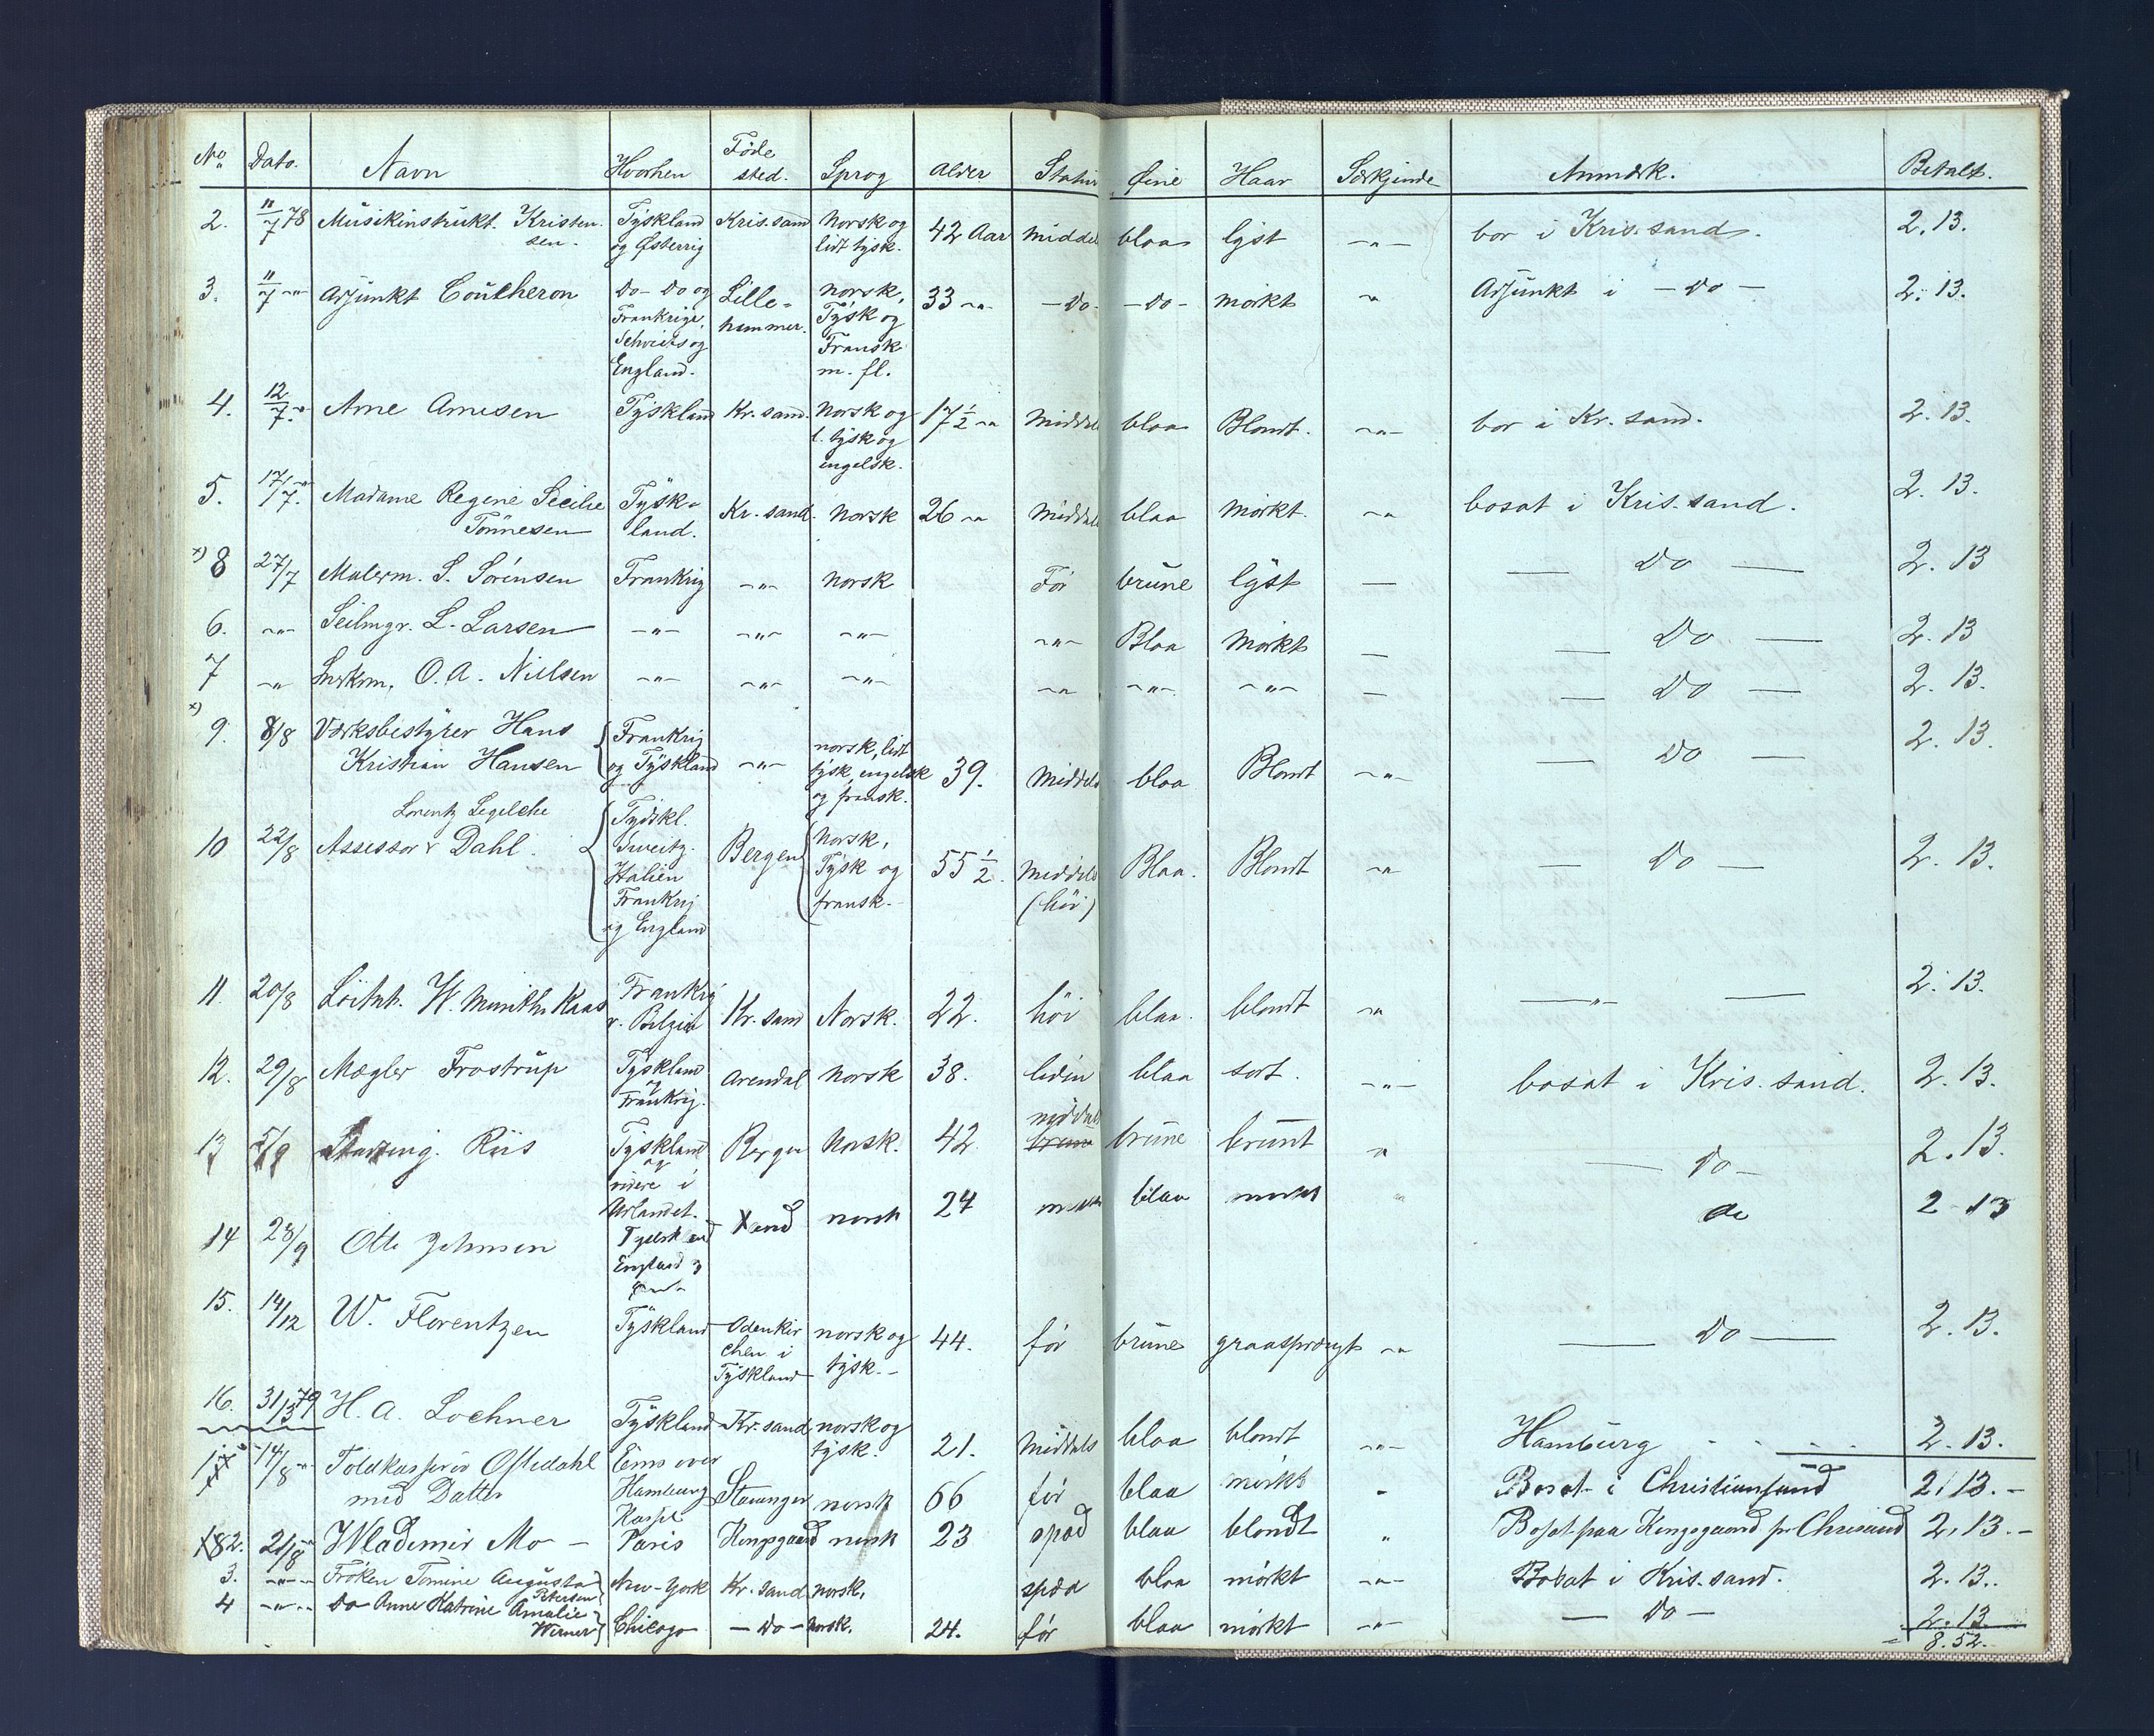 No Dato. Navn Hvorhen Føde sted. Sprog Alder Statur Øine Haar Særkjende Anmærk. Betalt.
2. 11/7 78 Musikinstrukt. Kristensen. Tyskland og Østerrig Kris.sand Norsk og lidt tysk. 42 Aar Middel blaa lyst -"- bor i Kris.sand. 2.13.
3. 11/7 -"- Adjunkt Coutheron Do- Do og Frankrige, Schveits og England. Lillehammer. norsk, Tysk og Fransk m. fl. 33 -"- -Do- -Do- mörkt -"- Adjunkt i -Do- 2.13.
4. 12/7 -"- Arne Arnesen Tyskland Kr.sand. Norsk og l. tysk og engelsk. 17 1/2 -"- Middels blaa Blondt. -"- bor i Kr.sand. 2.13.
5. 17/7. -"- Madame Regine Secilie Tönnesen Tyskland. Kr.sand. norsk 26 -"- Middels blaa Mörkt. -"- bosat i Kris.sand. 2.13.
x) 8 27/7 Malerm. S. Sörensen Frankrig -"- norsk För brune lyst — — Do — 2.13
6. -"- Seilmgr. L. Larsen -"- -"- -"- -"- Blaa Mörkt — — Do — 2.13
7 -"- Snekrm. O.A. Nielsen -"- -"- -"- -"- -"- -"- — — Do — 2.13.
x) 9. 8/8 Værksbestyrer Hans Kristian Hansen Frankrig og Tyskland -"- norsk, lidt tysk, engelsk og fransk. 39. Middels blaa Blondt -"- — Do — 2.13.
10 22/8 Assessor Lorentz Segelche Dahl. Tydskl. Sweitz. Italien Frankrig og England Bergen Norsk, Tysk og fransk. 55 1/2. Middels (höi) Blaa. Blondt -"- — Do — 2.13.
11. 20/8 Löitnt. W. Munthe Kaas Frankrig v. Belgien Kr.sand Norsk. 22. höi blaa. blondt -"- — " — 2.13.
12. 29/8 Mægler Frostrup Tyskland og Frankrig. Arendal norsk 38. liden blaa sort. -"- bosat i Kris.sand. 2.13.
13 5/9 Riis Tyskland og videre i Udlandet. Bergen norsk. 42 middels brune brunt -"- — Do — 2.13.
14 28/9 Otto Johnsen Tyskland England Xsand norsk 24 blaa mörkt " do 2 13
15. 14/12 W. Florentzen Tyskland Odenkirchen i Tyskland norsk og tysk. 44. för brune graasprængt -"- — Do — 2.13.
16. 31/3 79 H.A. Lochner Tyskland Kr.sand norsk og tysk. 21. Middels blaa blondt -"- Hamburg 2.13.
1 14/8 -"- Toldkasserer Oftedahl med Datter Ems over Hamburg Kassel Stavanger norsk 66 för blaa mörkt - Bosat i Christiansand 2.13.-
2. 21/8 -"- Wladimir Mo - Paris Kongsgaard norsk 23 spæd blaa blondt " Bosat paa Kongsgaard pr Chrisand 2.13.-
3. -"- Fröken Tomine Augusta Petersen New-York Kr.sand norsk. spæd blaa mörkt -"- Bosat i Kris.sand. 2.13.
4 -"- Do Anne Katrine Amalie Werner Chicago -Do- norsk. 24. för blaa mörkt -"- — Do — 2.13
= 8.52.